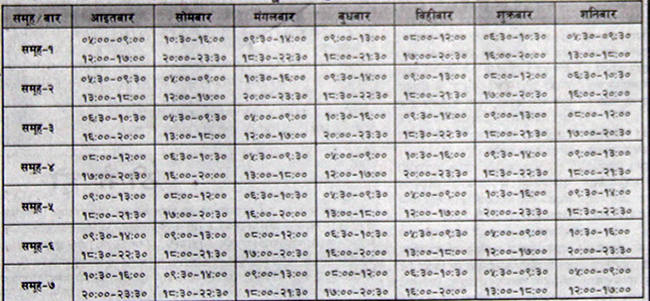 समूह/बार आइतबार सोमबार मंगलबार बुधबार बिहीबार शुक्रबार शनिबार
समूह-१ ०५:००-०९:०० १०:३०-१६:०० ०९:३०-१४:०० ०९:००-१३:०० ०८:००-१२:०० ०६:३०-१०:३० ०५:३०-०९:३०
१२:००-१७:०० २०:००-२३:३० १८:३०-२२:३० १८:००-२१:३० १७:००-२०:३० १६:००-२०:०० १३:००-१८:००
समूह-२ ०५:३०-०९:३० ०५:००-०९:०० १०:३०-१६:०० ०९:३०-१४:०० ०९:००-१३:०० ०८:००-१२:०० ०६:३०-१०:३०
१३:००-१८:०० १२:००-१७:०० २०:००-२३:३० १८:३०-२२:३० १८:००-२१:३० १७:००-२०:३० १६:००-२०:००
समूह-३ ०६:३०-१०:३० ०५:३०-०९:३० ०५:००-०९:०० १०:३०-१६:०० ०९:३०-१४:०० ०९:००-१३:०० ०८:००-१२:००
१६:००-२०:०० १३:००-१८:०० १२:००-१७:०० २०:००-२३:३० १८:३०-२२:३० १८:००-२१:३० १७:००-२०:३०
समूह-४ ०८:००-१२:०० ०६:३०-१०:३० ०५:३०-०९:३० ०५:००-०९:०० १०:३०-१६:०० ०९:३०-१४:०० ०९:००-१३:००
१७:००-२०:३० १६:००-२०:०० १३:००-१८:०० १२:००-१७:०० २०:००-२३:३० १८:३०-२२:३० १८:००-२१:३०
समूह-५ ०९:००-१३:०० ०८:००-१२:०० ०६:३०-१०:३० ०५:३०-०९:३० ०५:००-०९:०० १०:३०-१६:०० ०९:३०-१४:००
१८:००-२१:३० १७:००-२०:३० १६:००-२०:०० १३:००-१८:०० १२:००-१७:०० २०:००-२३:३० १८:३०-२२:३०
समूह-६ ०९:३०-१४:०० ०९:००-१३:०० ०८:००-१२:०० ०६:३०-१०:३० ०५:३०-०९:३० ०५:००-०९:०० १०:३०-१६:००
१८:३०-२२:३० १८:००-२१:३० १७:००-२०:३० १६:००-२०:०० १३:००-१८:०० १२:००-१७:०० २०:००-२३:३०
समूह-७ १०:३०-१६:०० ०९:३०-१४:०० ०९:००-१३:०० ०८:००-१२:०० ०६:३०-१०:३० ०५:३०-०९:३० ०५:००-०९:००
२०:००-२३:३० १८:३०-२२:३० १८:००-२१:३० १७:००-२०:३० १६:००-२०:०० १३:००-१८:०० १२:००-१७:००